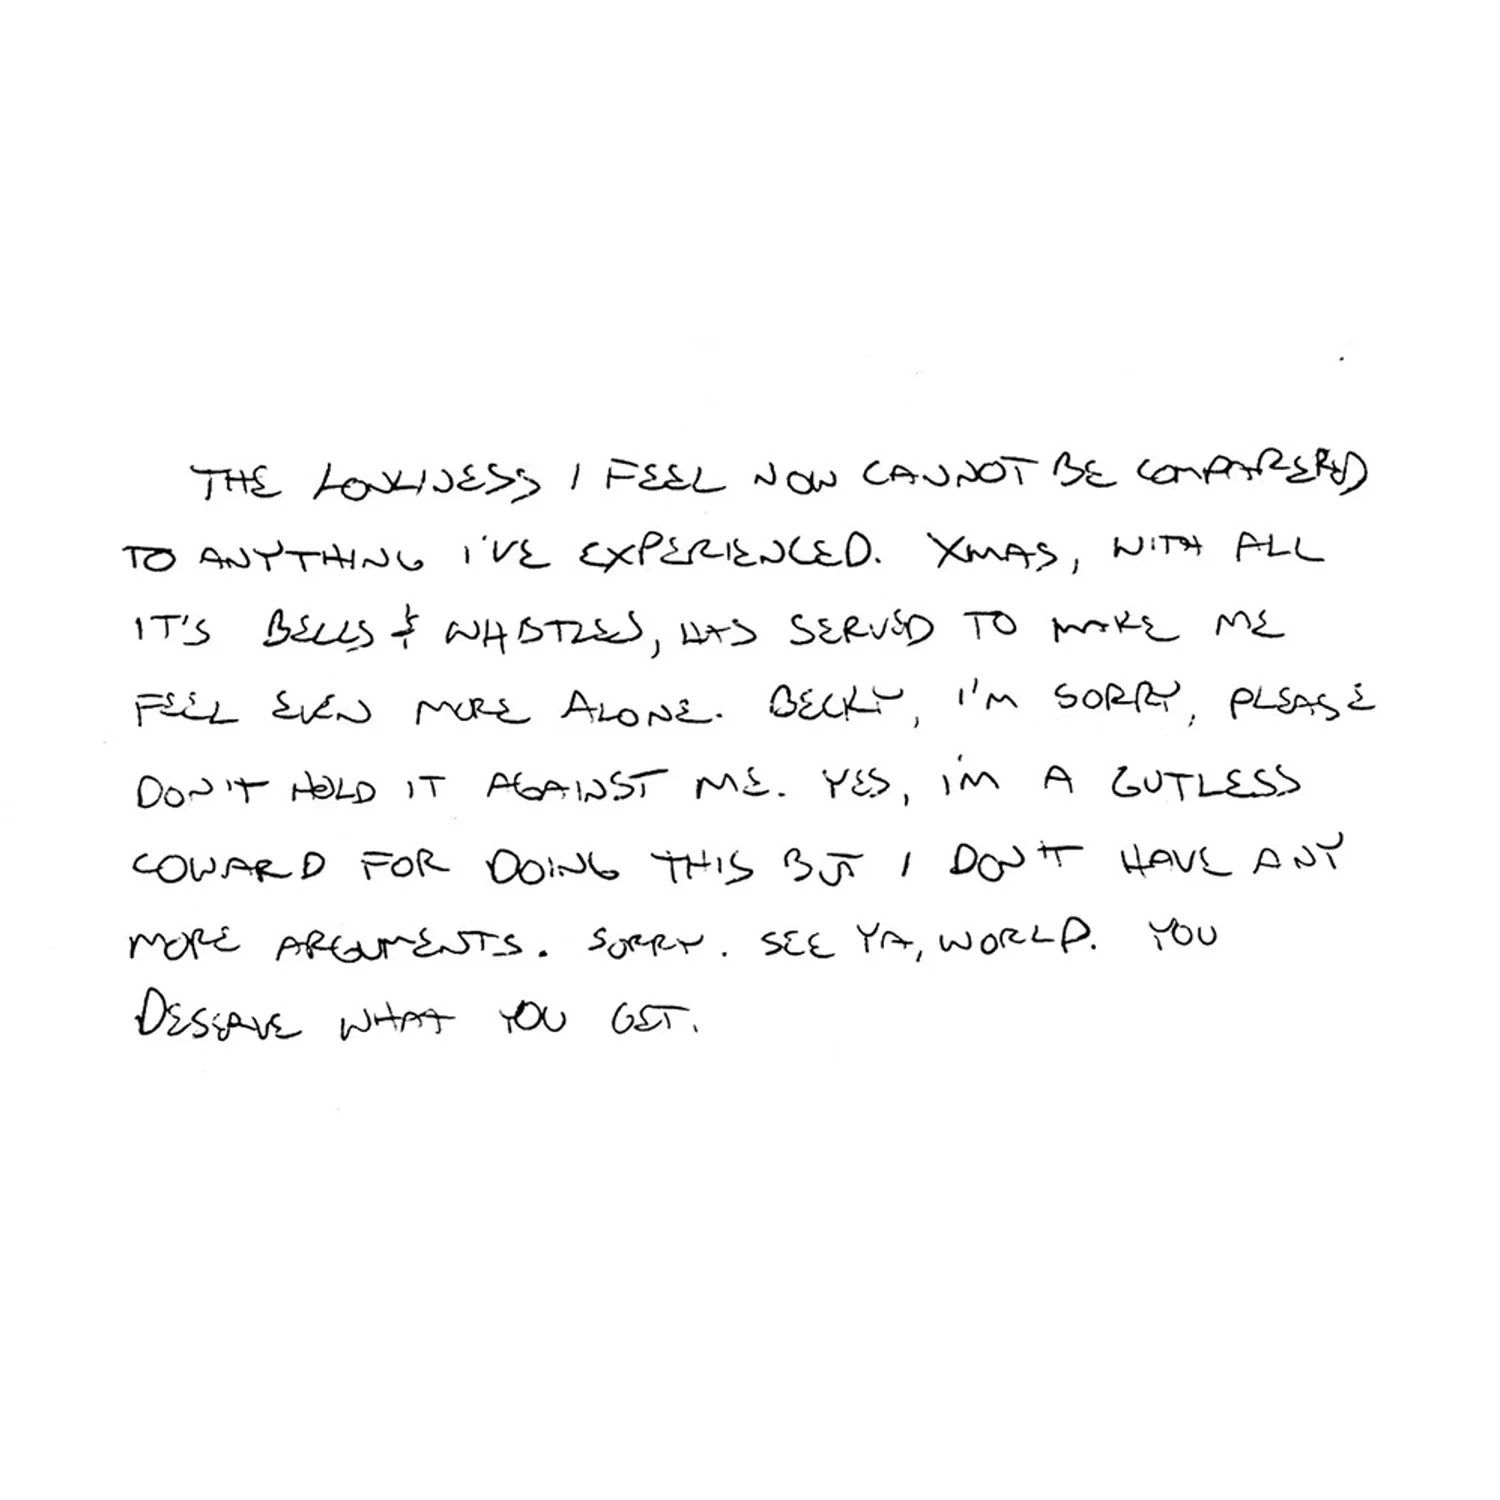 THE LONLINESS I FEEL NOW CANNOT BE COMPARERED
TO ANYTHING I'VE EXPERIENCED. XMAS, WITH ALL
IT'S BELLS & WHISTLES, HAS SERVED TO MAKE ME
FEEL EVEN MORE ALONE. BECKY, I'M SORRY, PLEASE
DON'T HOLD IT AGAINST ME. YES, I'M A GUTLESS
COWARD FOR DOING THIS BUT I DON'T HAVE ANY
MORE ARGUMENTS. SORRY. SEE YA, WORLD. YOU
DESERVE WHAT YOU GET.